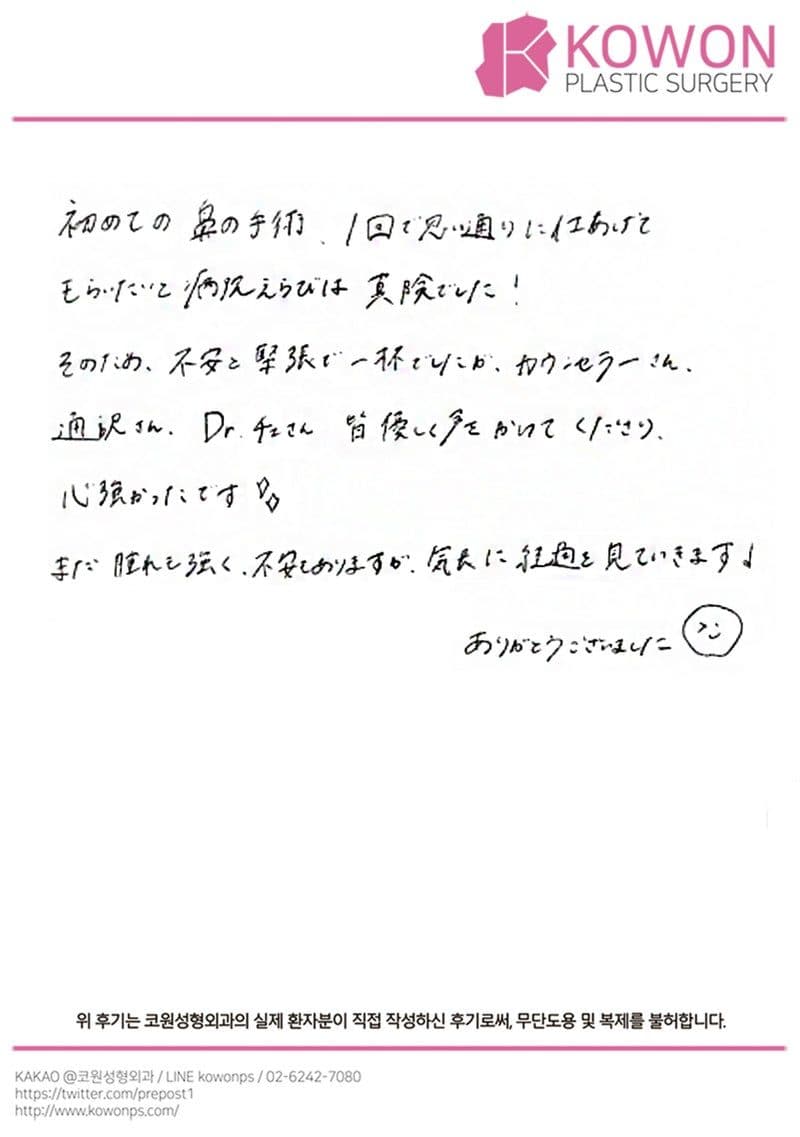 KOWON
PLASTIC SURGERY
初めての 鼻の手術、1回で思い通りに仕あげて
もらいたいと病院えらびは 真険でした!
そのため、不安と緊張で一杯でしたが、カウンセラーさん、
通訳さん、Dr.チェさん 皆優しく声をかけてくださり、
心強かったです
まだ 腫れも強く、不安もありますが、気長に経過を見ていきます!
ありがとうございました
위 후기는 코원성형외과의 실제 환자분이 직접 작성하신 후기로써, 무단도용 및 복제를 불허합니다.
KAKAO @코원성형외과 / LINE kowonps / 02-6242-7080
https://twitter.com/prepost1
http://www.kowonps.com/